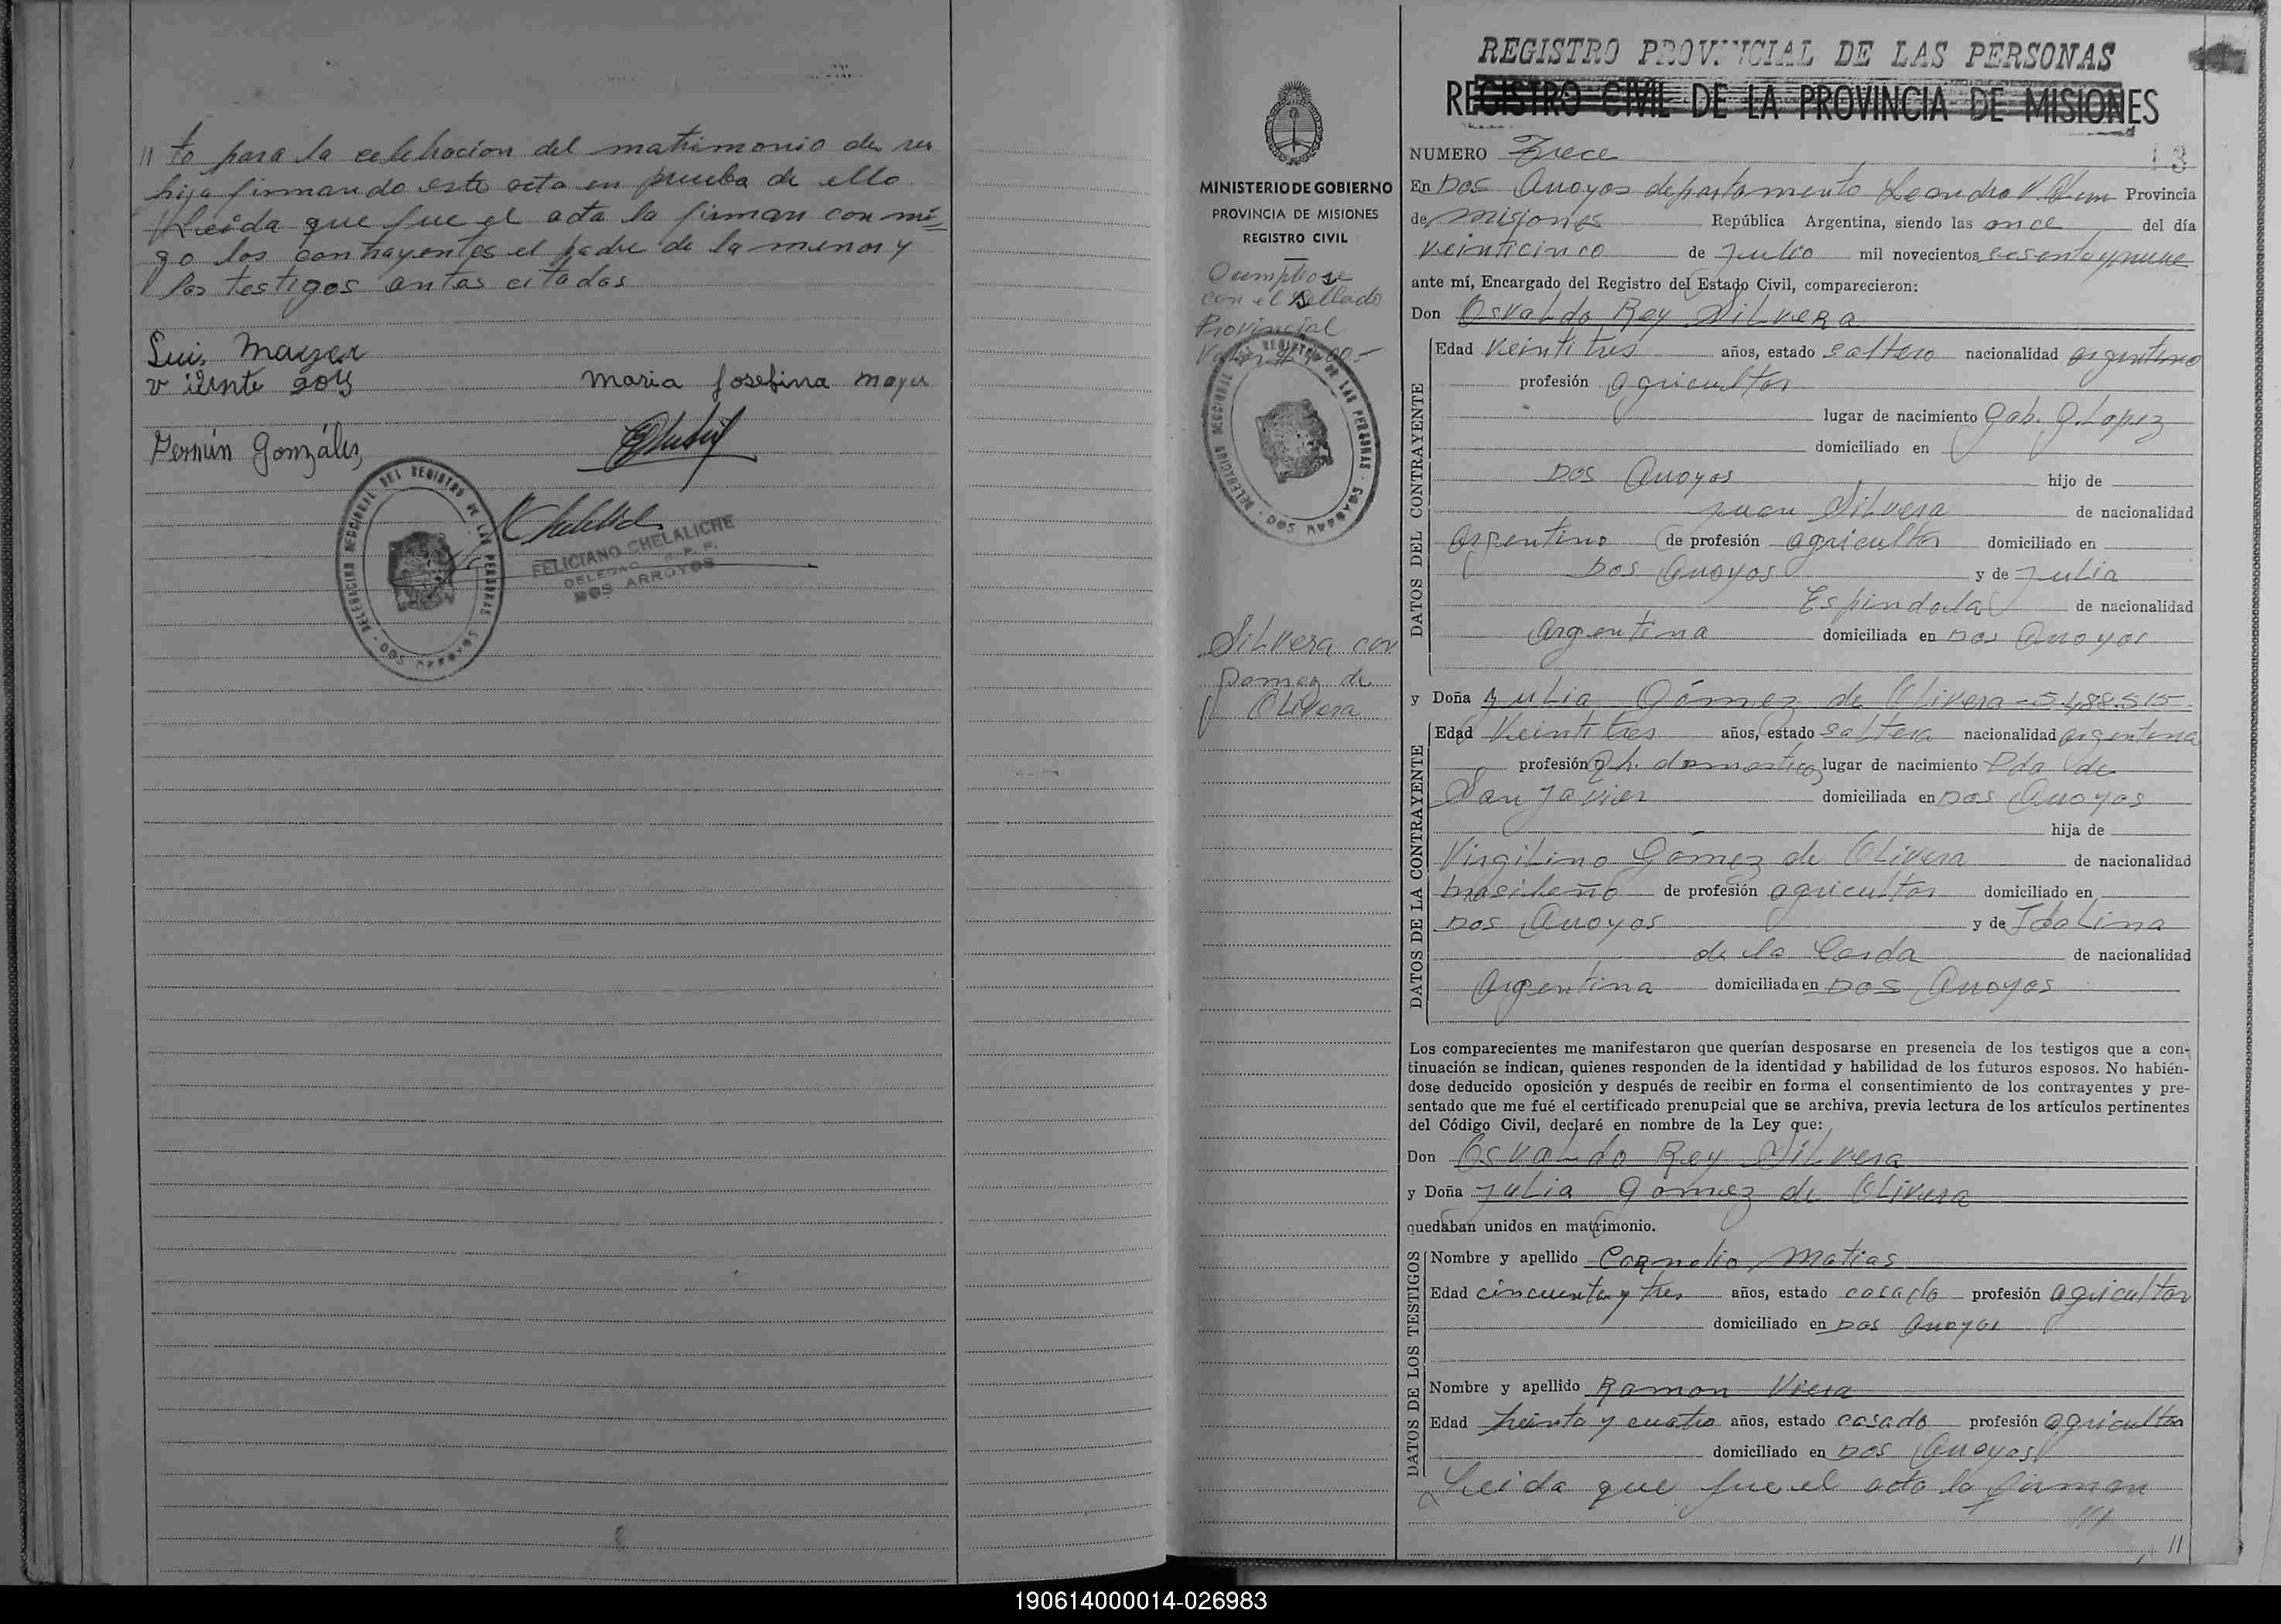 // to para la celebracion del matrimonio de su
hija firmando este acta en prueba de ello
Leida que fue el acta la firman con mi=
go los contrayentes el padre de la menor y
los testigos antes citados
Luis Mayer
Maria Josefina Mayer
Fermín Gonzáles
DELEGACION SECCIONAL DEL REGISTRO DE LAS PERSONAS - DOS ARROYOS
FELICIANO CHELALICHE
DELEGADO R. P. P.
DOS ARROYOS
MINISTERIO DE GOBIERNO
PROVINCIA DE MISIONES
REGISTRO CIVIL
Cumpliose
con el Sellado
Provincial
DELEGACION SECCIONAL DEL REGISTRO DE LAS PERSONAS - DOS ARROYOS
Silvera con
Gomez de
Olivera
REGISTRO PROVINCIAL DE LAS PERSONAS
REGISTRO CIVIL DE LA PROVINCIA DE MISIONES
NUMERO Trece 13
En Dos Arroyos departamento Leandro N. Alem Provincia
de Misiones República Argentina, siendo las once del día
veinticinco de Julio mil novecientos sesentaynueve
ante mí, Encargado del Registro del Estado Civil, comparecieron:
Don Osvaldo Rey Silvera
DATOS DEL CONTRAYENTE
Edad veintitres años, estado soltero nacionalidad argentino
profesión agricultor
lugar de nacimiento Gob. G. Lopez
domiciliado en
Dos Arroyos hijo de
Juan Silvera de nacionalidad
argentino de profesión agricultor domiciliado en
Dos Arroyos y de Julia
Espindola de nacionalidad
argentina domiciliada en Dos Arroyos
y Doña Julia Gómez de Olivera - 5.488.515
DATOS DE LA CONTRAYENTE
Edad Veintitres años, estado soltera nacionalidad argentina
profesión q. h. domesticos lugar de nacimiento Pda de
San Javier domiciliada en Dos Arroyos
hija de
Virgilino Gómez de Olivera de nacionalidad
brasileño de profesión agricultor domiciliado en
Dos Arroyos y de Idalina
de la Cerda de nacionalidad
Argentina domiciliada en Dos Arroyos
Los comparecientes me manifestaron que querían desposarse en presencia de los testigos que a con-
tinuación se indican, quienes responden de la identidad y habilidad de los futuros esposos. No habién-
dose deducido oposición y después de recibir en forma el consentimiento de los contrayentes y pre-
sentado que me fué el certificado prenupcial que se archiva, previa lectura de los artículos pertinentes
del Código Civil, declaré en nombre de la Ley que:
Don Osvaldo Rey Silvera
y Doña Julia Gomez de Olivera
quedaban unidos en matrimonio.
DATOS DE LOS TESTIGOS
Nombre y apellido Cornelio Matias
Edad cincuenta y tres años, estado casado profesión agricultor
domiciliado en Dos Arroyos
Nombre y apellido Ramon Viera
Edad treinta y cuatro años, estado casado profesión agricultor
domiciliado en Dos Arroyos
Leida que fue el acta la firman
///
11
190614000014-026983